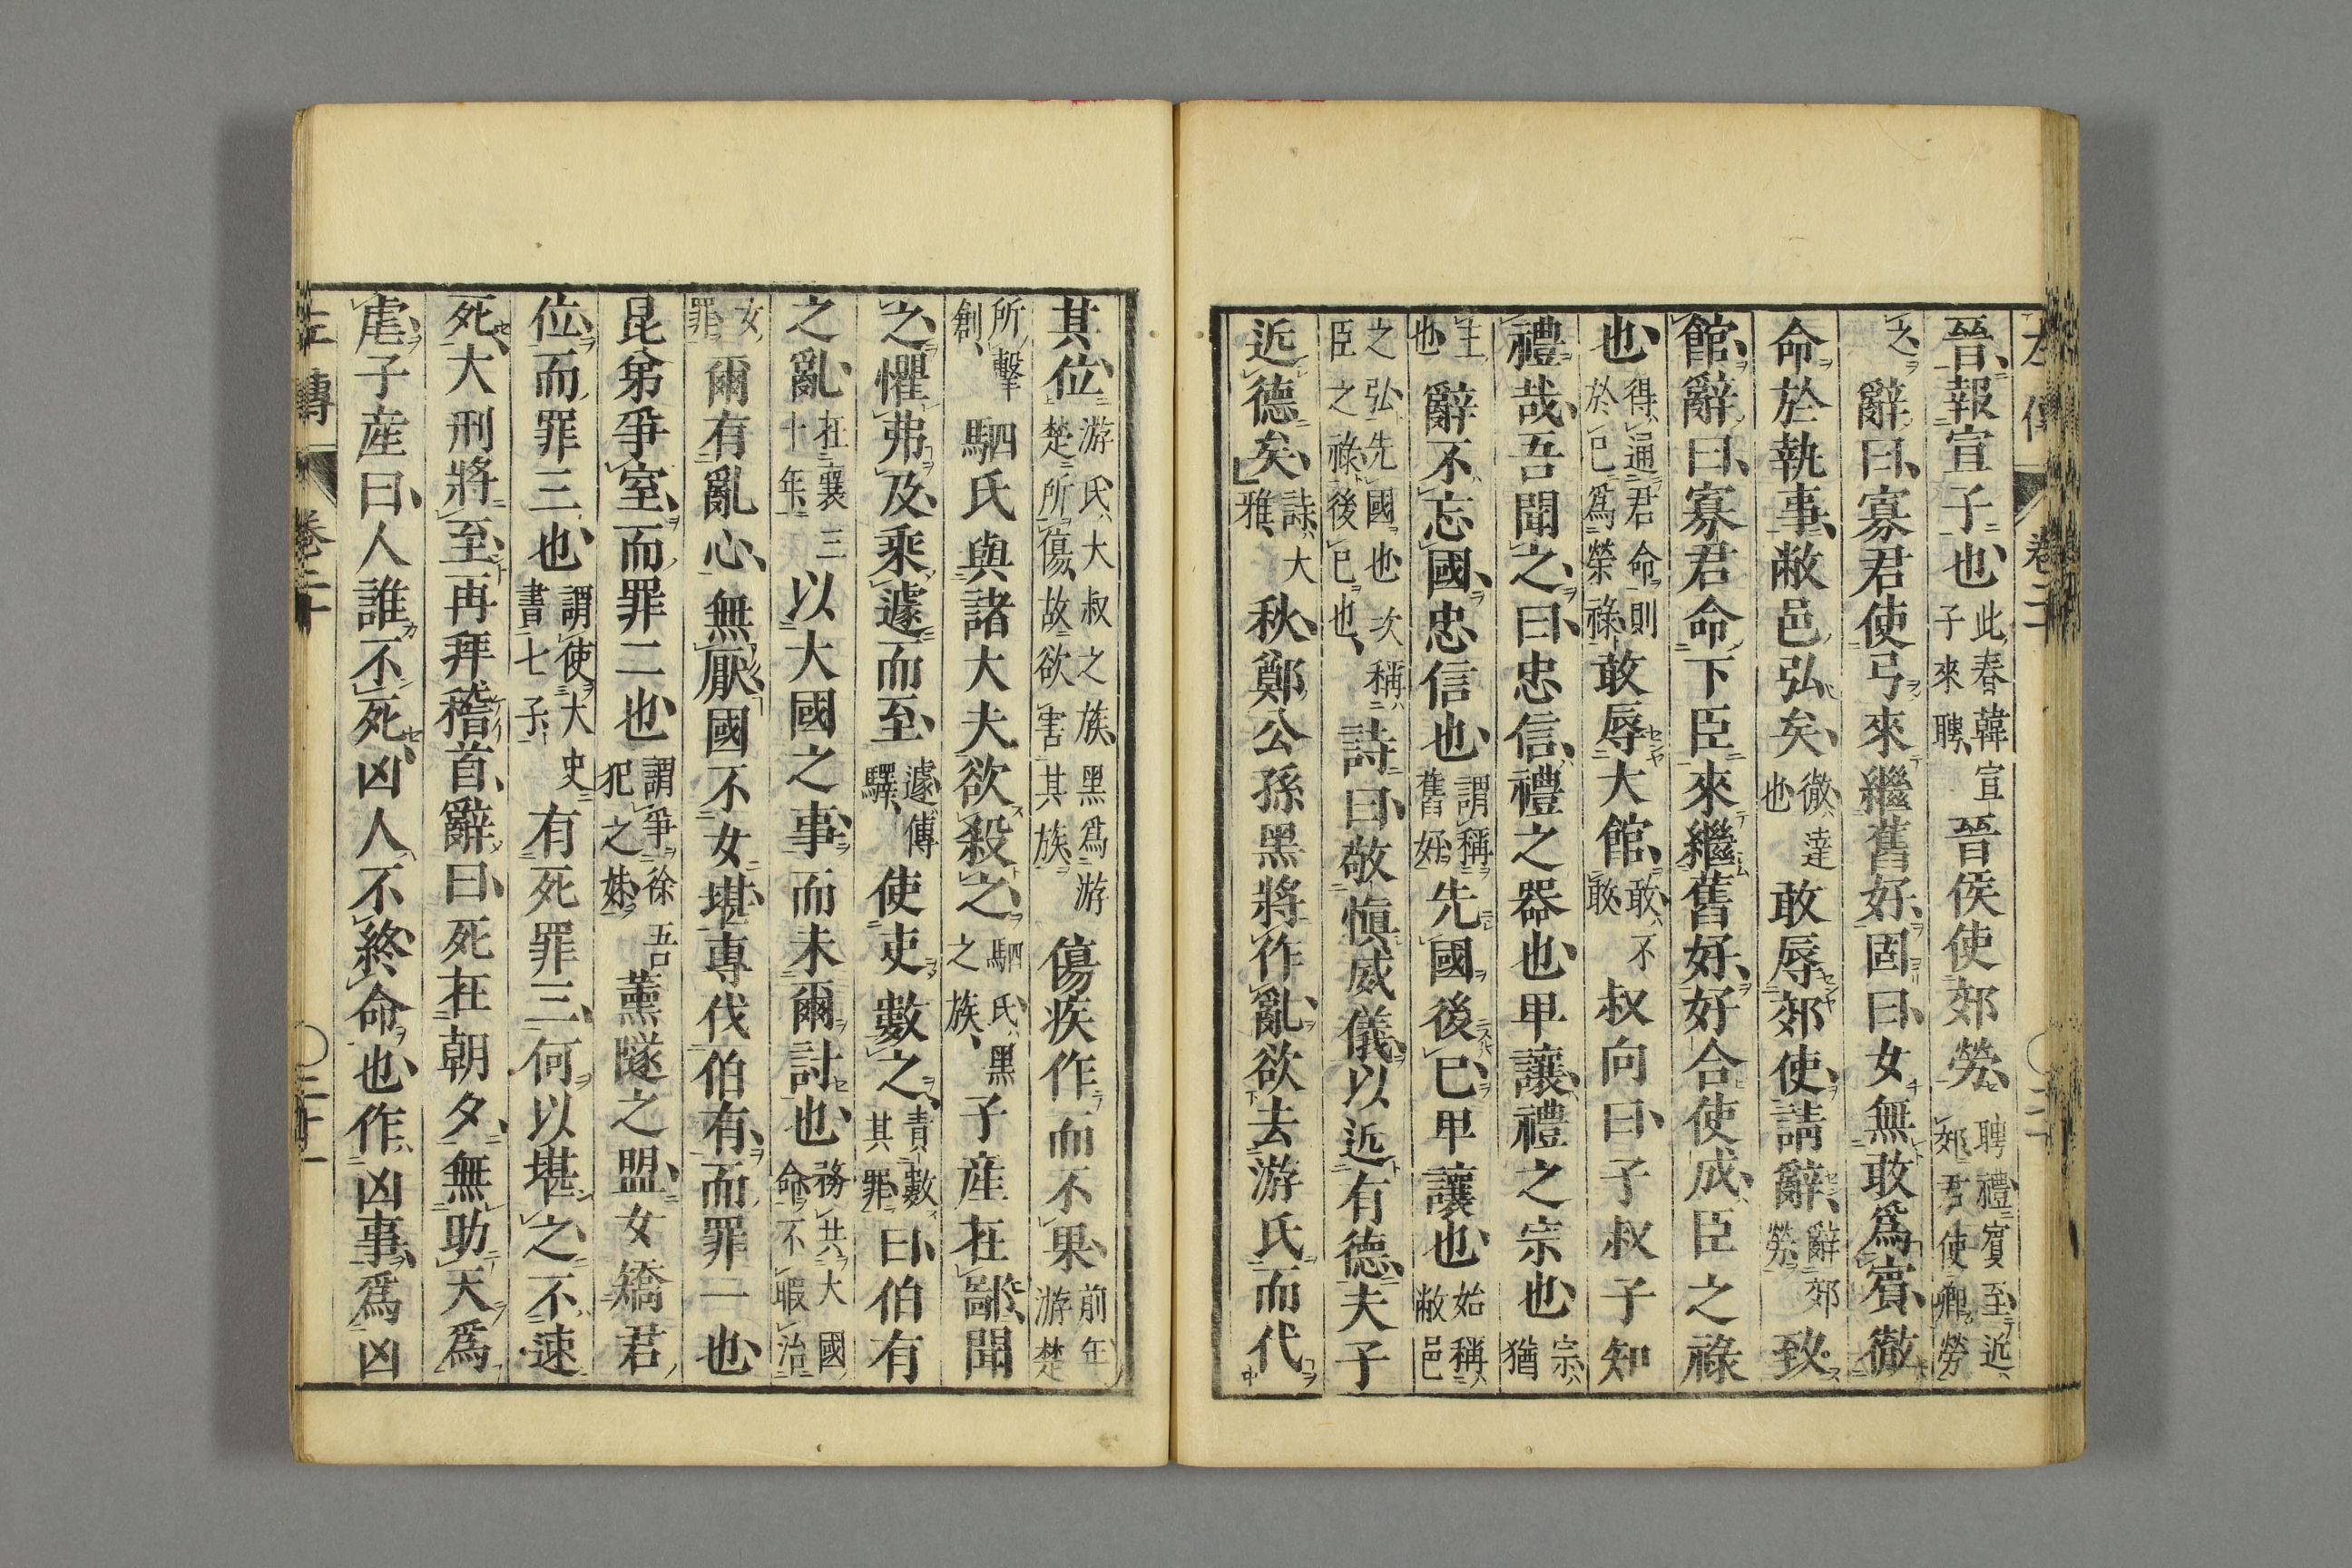 晉報宣子也此春韓宣子來聘晉侯使郊勞聘禮賓至近郊君使卿勞
之辭曰寡君使弓來繼舊好固曰女無敢爲賓徹
命於執事敝邑弘矣徹達也敢辱郊使請辭辭郊勞致
館辭曰寡君命下臣來繼舊好好合使成臣之祿
也得通君命則於已爲榮祿敢辱大館敢不敢叔向曰子叔子知
禮哉吾聞之曰忠信禮之器也卑讓禮之宗也宗猶
主也辭不忘國忠信也謂稱舊好先國後已卑讓也始稱敝邑
之弘先國也次稱臣之祿後已也詩曰敬愼威儀以近有德夫子
近德矣詩大雅秋鄭公孫黑將作亂欲去游氏而代
其位游氏大叔之族黑爲游楚所傷故欲害其族傷疾作而不果前年游楚
所擊創駟氏與諸大夫欲殺之駟氏黑之族子產在鄙聞
之懼弗及乘遽而至遽傳驛使吏數之責數其罪曰伯有
之亂在襄三十年以大國之事而未爾討也務共大國命不暇治
女罪爾有亂心無厭國不女堪專伐伯有而罪一也
昆弟爭室而罪二也謂爭徐吾犯之妹薰隧之盟女矯君
位而罪三也謂使大史書七子有死罪三何以堪之不速
死大刑將至再拜稽首辭曰死在朝夕無助天爲
虐子產曰人誰不死凶人不終命也作凶事爲凶
左傳　卷二十　二十一